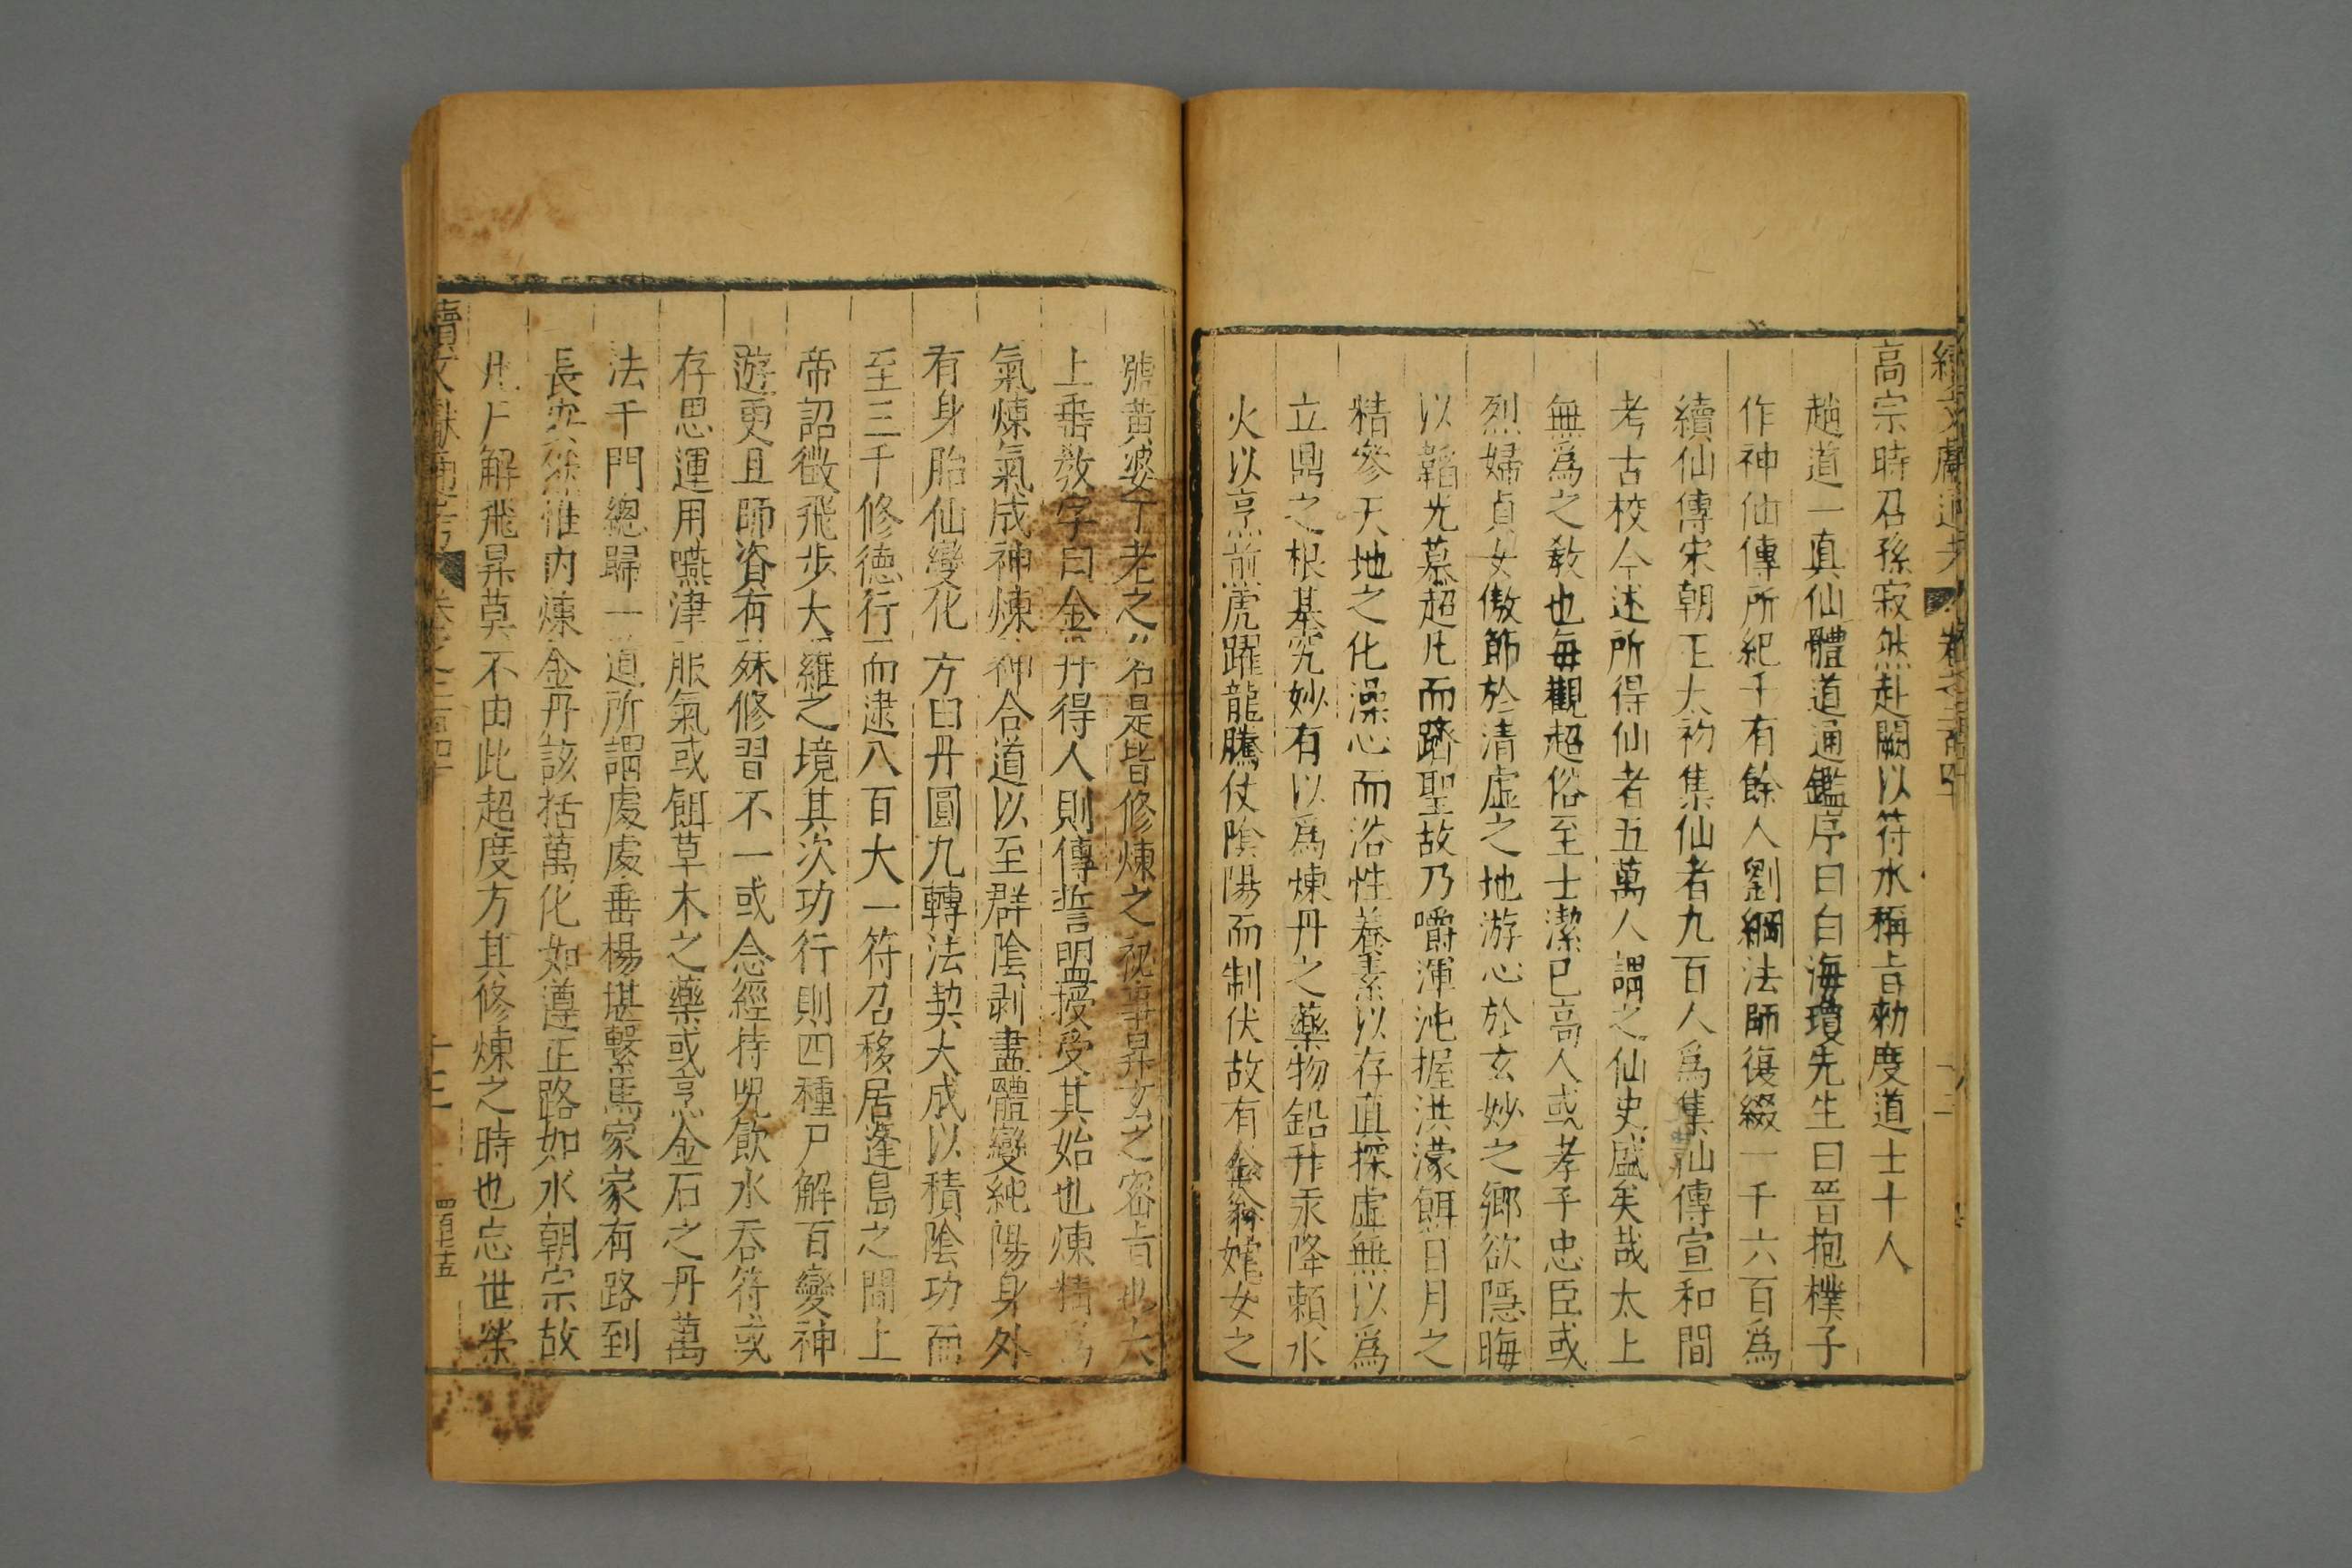 續文獻通考 卷之二百四十 十二
高宗時召孫寂然赴闕以符水稱旨勑度道士十人
趙道一真仙體道通鑑序曰白海瓊先生曰晉抱樸子
作神仙傳所紀千有餘人劉綱法師復綴一千六百爲
續仙傳宋朝王太初集仙者九百人爲集仙傳宣和間
考古校今述所得仙者五萬人謂之仙史盛矣哉太上
無爲之教也每觀超俗至士潔已高人或孝子忠臣或
烈婦貞女傲節於清虛之地游心於玄妙之鄉欲隱晦
以韜光慕超凡而躋聖故乃嚼渾沌握洪濛餌日月之
精參天地之化澡心而浴性養素以存真探虛無以爲
立鼎之根基究妙有以爲煉丹之藥物鉛升汞降賴水
火以烹煎虎躍龍騰仗陰陽而制伏故有金翁姹女之
號黃婆丁老之名是皆修煉之祕事昇玄之密旨也太
上垂教字曰金丹得人則傳誓盟授受其始也煉精爲
氣煉氣成神煉神合道以至群陰剥盡體變純陽身外
有身胎仙變化方曰丹圓九轉法契大成以積陰功而
至三千修德行而逮八百大一符召移居蓬島之間上
帝詔徵飛步大羅之境其次功行則四種尸解百變神
遊更且師資有殊修習不一或念經持呪飲水吞符或
存思運用嚥津服氣或餌草木之藥或烹金石之丹萬
法千門總歸一道所謂處處垂楊堪繫馬家家有路到
長安然惟內煉金丹該括萬化如遵正路如水朝宗故
凡尸解飛昇莫不由此超度方其修煉之時也忘世榮
續文獻通考 卷之二百四十 十三 四百七十五